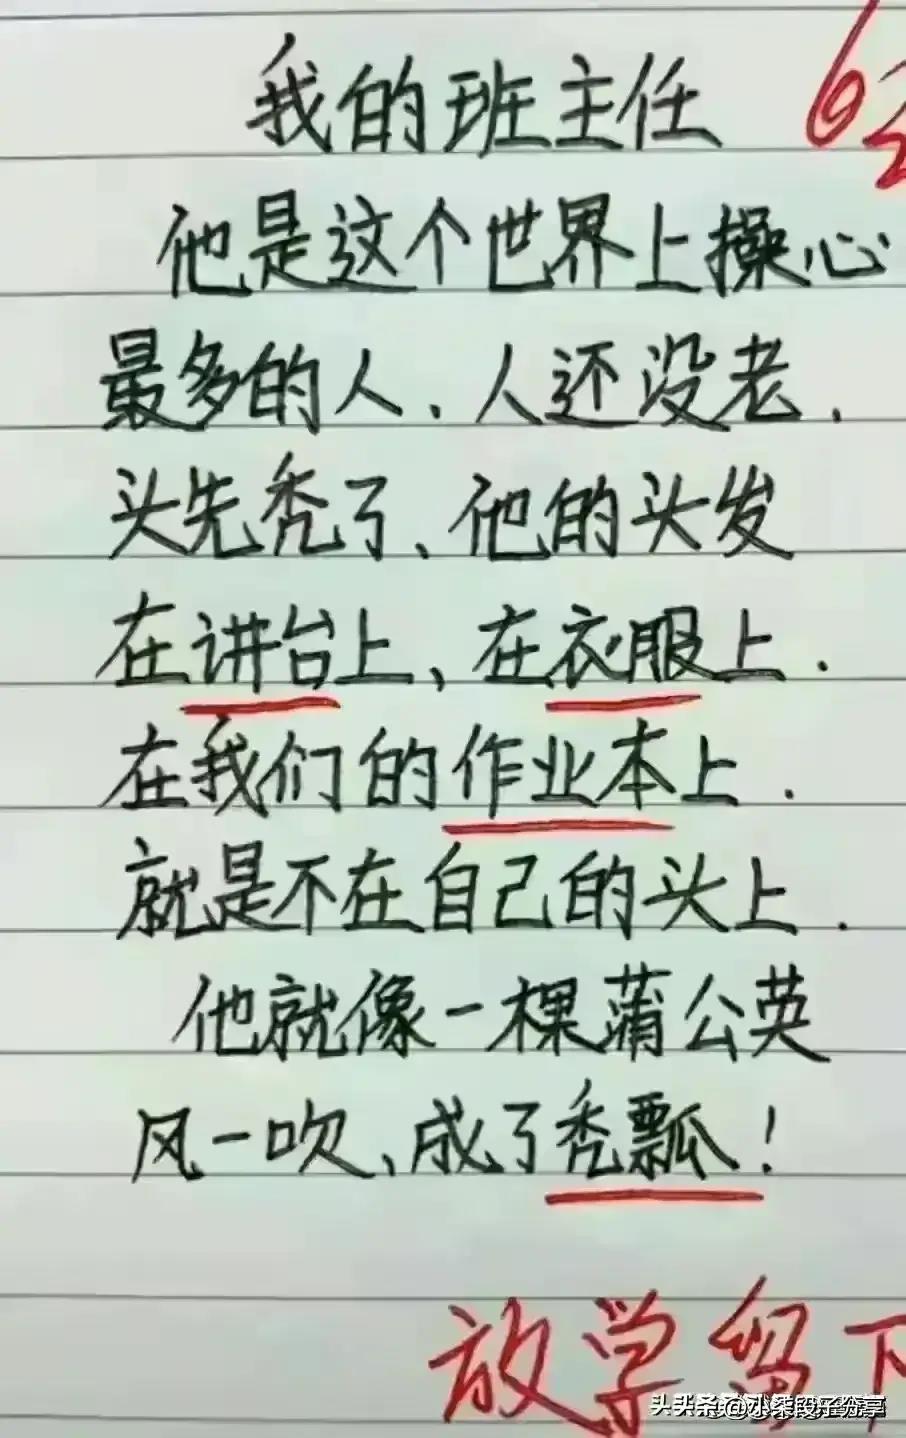 我的班主任
62
他是这个世界上操心
最多的人、人还没老.
头先秃了、他的头发
在讲台上、在衣服上.
在我们的作业本上.
就是不在自己的头上.
他就像一棵蒲公英
风一吹、成了秃瓢!
放学留下
头条@小柒段子分享